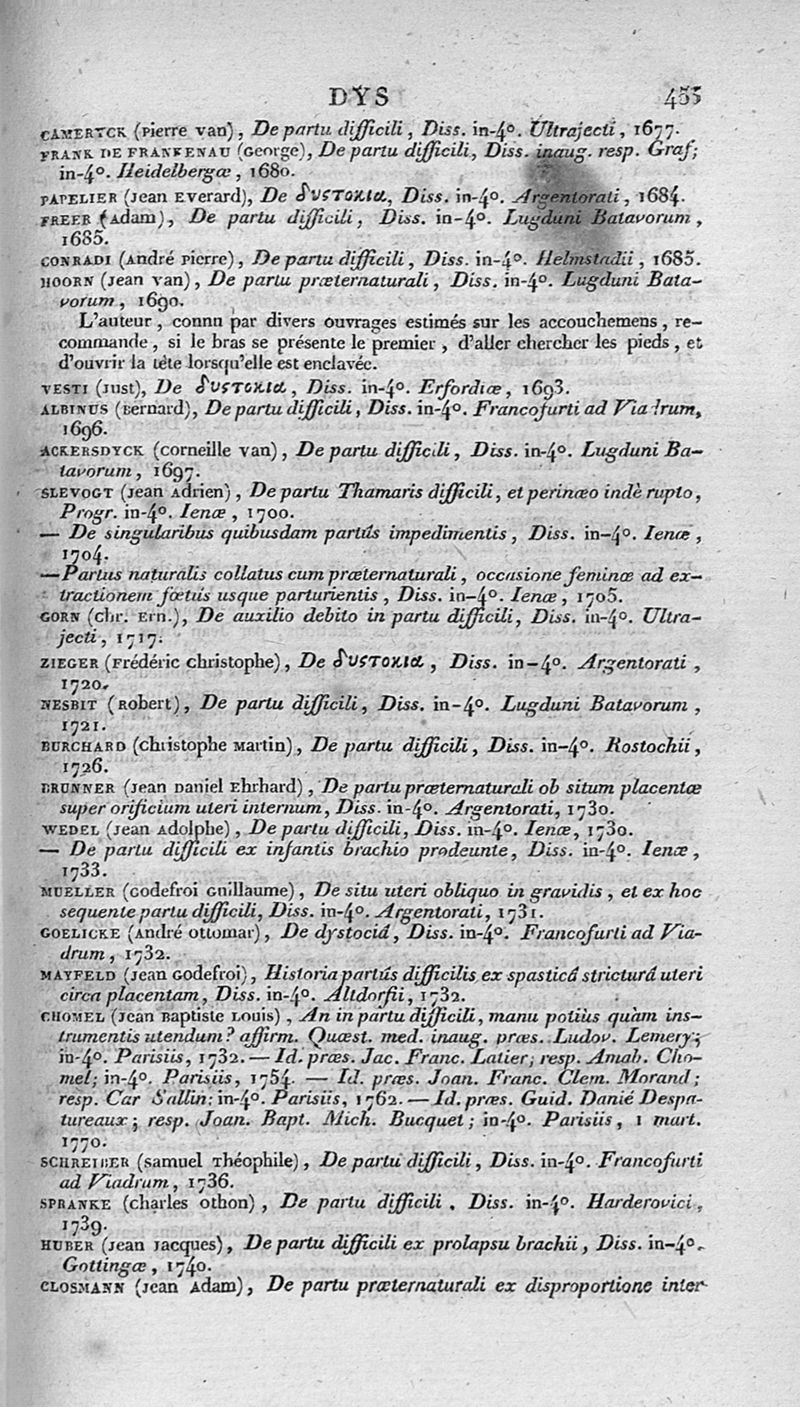 DYS 455
CAMERYCK (Pierre van), De partu difficili, Diss. in-4°. Ultrajecti, 1677.
FRANK DE FRANKENAU (George), De partu difficili, Diss. inaug. resp. Graf;
in-4°. Heidelbergæ, 1680.
PAPELIER (Jean Everard), De δυςτοκια, Diss. in-4°. Argentorati, 1684.
FREER (Adam), De partu difficili, Diss. in-4°. Lugduni Batavorum,
1685.
CONRADI (André Pierre), De partu difficili, Diss. in-4°. Helmstadii, 1685.
HOORN (Jean van), De partu præternaturali, Diss. in-4°. Lugduni Bata-
vorum, 1690.
L'auteur, connu par divers ouvrages estimés sur les accouchemens, re-
commande, si le bras se présente le premier, d'aller chercher les pieds, et
d'ouvrir la tête lorsqu'elle est enclavée.
VESTI (Just), De δυςτοκια, Diss. in-4°. Erfordiæ, 1693.
ALBINUS (Bernard), De partu difficili, Diss. in-4°. Francofurti ad Viadrum,
1696.
ACKERSDYCK (Corneille van), De partu difficili, Diss. in-4°. Lugduni Ba-
tavorum, 1697.
SLEVOGT (Jean Adrien), De partu Thamaris difficili, et perinæo indè rupto,
Progr. in-4°. Ienæ, 1700.
— De singularibus quibusdam partûs impedimentis, Diss. in-4°. Ienæ,
1704.
— Partus naturalis collatus cum præternaturali, occasione feminæ ad ex-
tractionem fœtûs usque parturientis, Diss. in-4°. Ienæ, 1705.
GORN (Chr. Ern.), De auxilio debito in partu difficili, Diss. in-4°. Ultra-
jecti, 1717.
ZIEGER (Frédéric Christophe), De δυςτοκια, Diss. in-4°. Argentorati,
1720.
NESBIT (Robert), De partu difficili, Diss. in-4°. Lugduni Batavorum,
1721.
BURCHARD (Christophe Martin), De partu difficili, Diss. in-4°. Rostochii,
1726.
BRUNNER (Jean Daniel Ehrhard), De partu præternaturali ob situm placentæ
super orificium uteri internum, Diss. in-4°. Argentorati, 1730.
WEDEL (Jean Adolphe), De partu difficili, Diss. in-4°. Ienæ, 1730.
— De partu difficili ex infantis brachio prodeunte, Diss. in-4°. Ienæ,
1733.
MUELLER (Godefroi Guillaume), De situ uteri obliquo in gravidis, et ex hoc
sequente partu difficili, Diss. in-4°. Argentorati, 1731.
GOELICKE (André Ottomar), De dystociâ, Diss. in-4°. Francofurti ad Via-
drum, 1732.
MAYFELD (Jean Godefroi), Historia partûs difficilis ex spasticâ stricturâ uteri
circa placentam, Diss. in-4°. Altdorfii, 1732.
CHOMEL (Jean Baptiste Louis), An in partu difficili, manu potiùs quàm ins-
trumentis utendum? affirm. Quæst. med. inaug. præs. Ludov. Lemery;
in-4°. Parisiis, 1732. — Id. præs. Jac. Franc. Latier; resp. Amab. Cho-
mel; in-4°. Parisiis, 1754. — Id. præs. Joan. Franc. Clem. Morand;
resp. Car Sallin; in-4°. Parisiis, 1762. — Id. præs. Guid. Danié Despa-
tureaux; resp. Joan. Bapt. Mich. Bucquet; in-4°. Parisiis, 1 mart.
1770.
SCHREIBER (Samuel Théophile), De partu difficili, Diss. in-4°. Francofurti
ad Viadrum, 1736.
SPRANKE (Charles Othon), De partu difficili, Diss. in-4°. Harderovici,
1739.
HUBER (Jean Jacques), De partu difficili ex prolapsu brachii, Diss. in-4°.
Gottingæ, 1740.
CLOSMANN (Jean Adam), De partu præternaturali ex disproportione inter